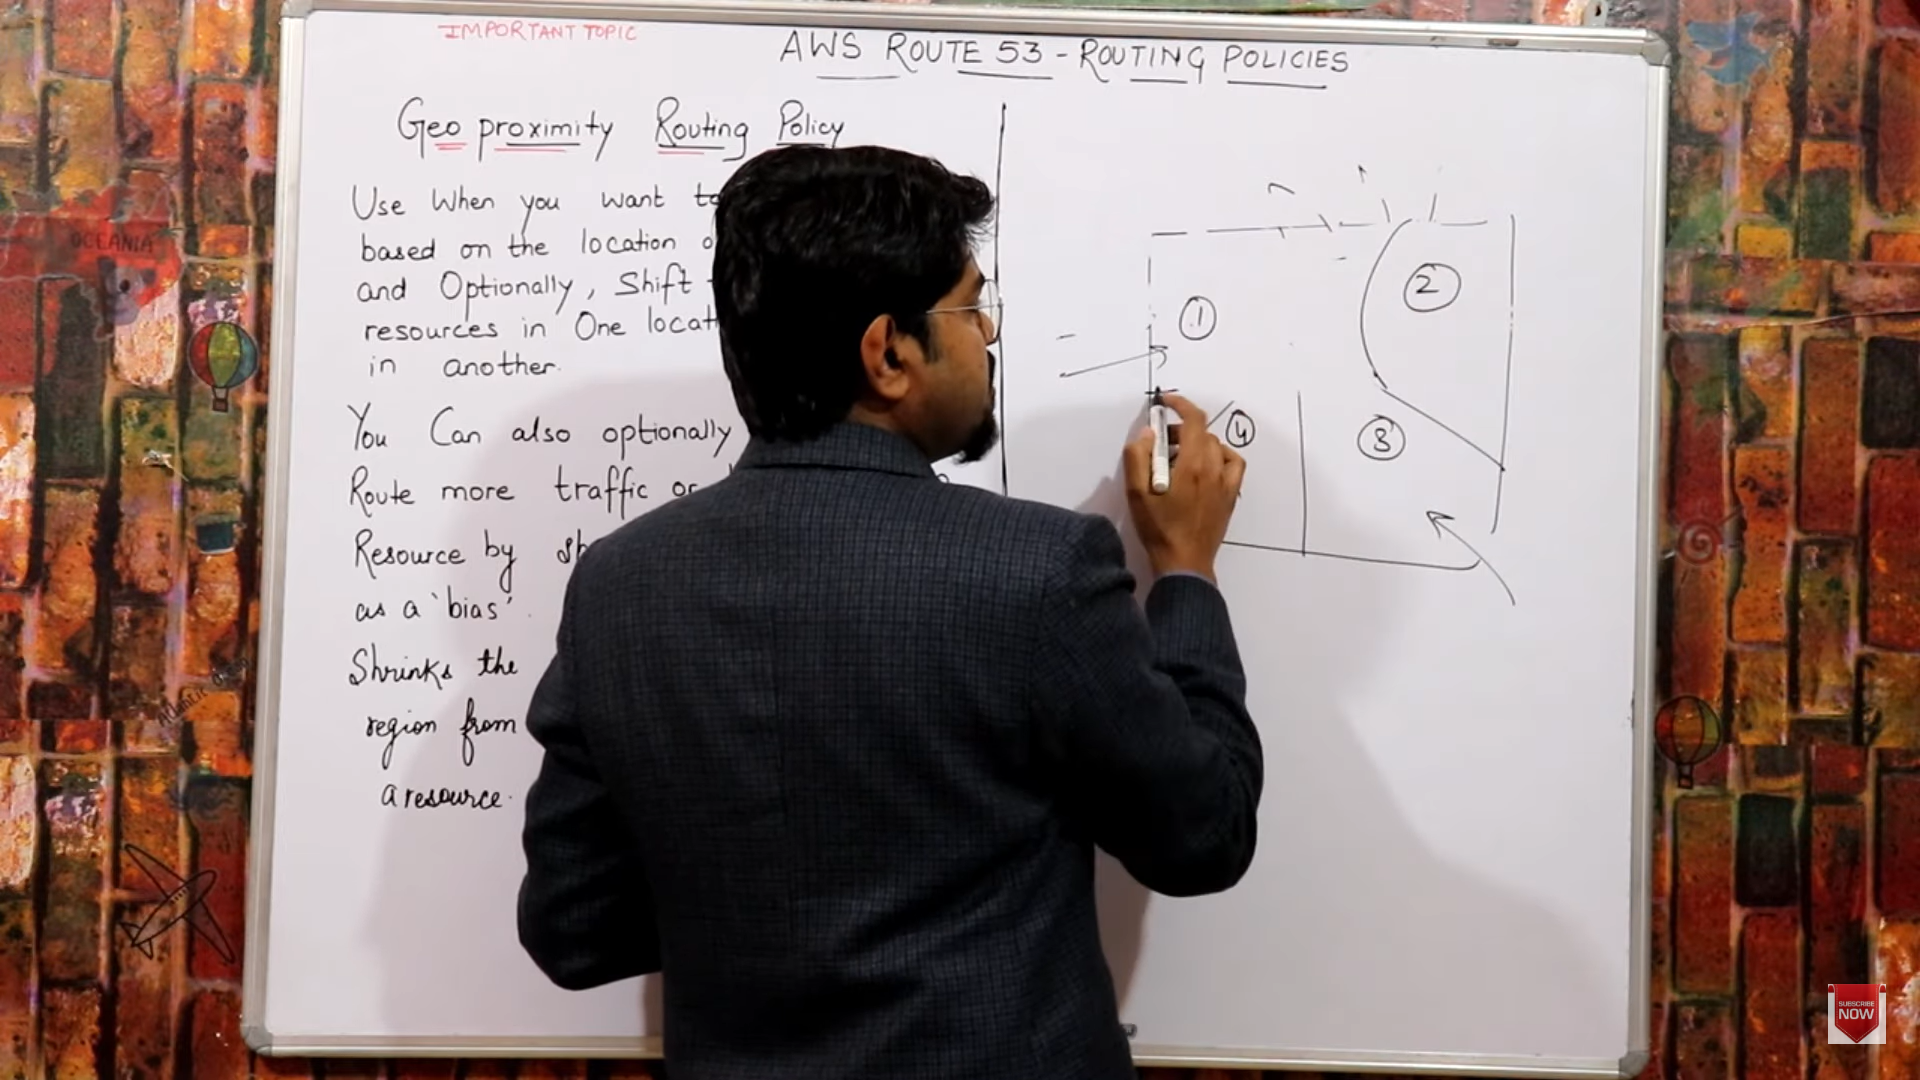 IMPORTANT TOPIC
AWS ROUTE 53 - ROUTING POLICIES
Geo proximity Routing Policy
Use When you want to
based on the location
and Optionally, Shift
resources in One
in another.
You Can also optionally
Route more traffic or
Resource by
as a 'bias'.
Shrinks the
region from
a resource.
1
2
3
4
OCEANIA
SUBSCRIBE
NOW